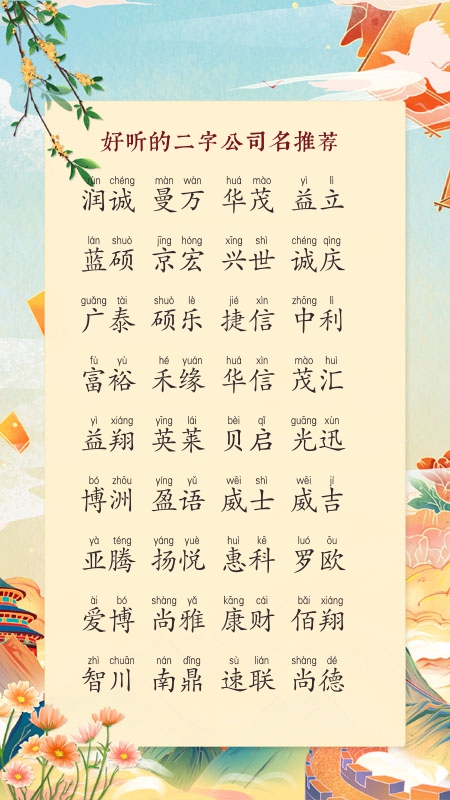 好听的二字公司名推荐
rùn chéng màn wàn huá mào yì lì
润诚 曼万 华茂 益立
lán shuò jīng hóng xīng shì chéng qìng
蓝硕 京宏 兴世 诚庆
guǎng tài shuò lè jié xìn zhōng lì
广泰 硕乐 捷信 中利
fù yù hé yuán huá xìn mào huì
富裕 禾缘 华信 茂汇
yì xiáng yīng lái bèi qǐ guāng xùn
益翔 英莱 贝启 光迅
bó zhōu yíng yǔ wēi shì wēi jí
博洲 盈语 威士 威吉
yà téng yáng yuè huì kē luó ōu
亚腾 扬悦 惠科 罗欧
ài bó shàng yǎ kāng cái bǎi xiáng
爱博 尚雅 康财 佰翔
zhì chuān nán dǐng sù lián shàng dé
智川 南鼎 速联 尚德